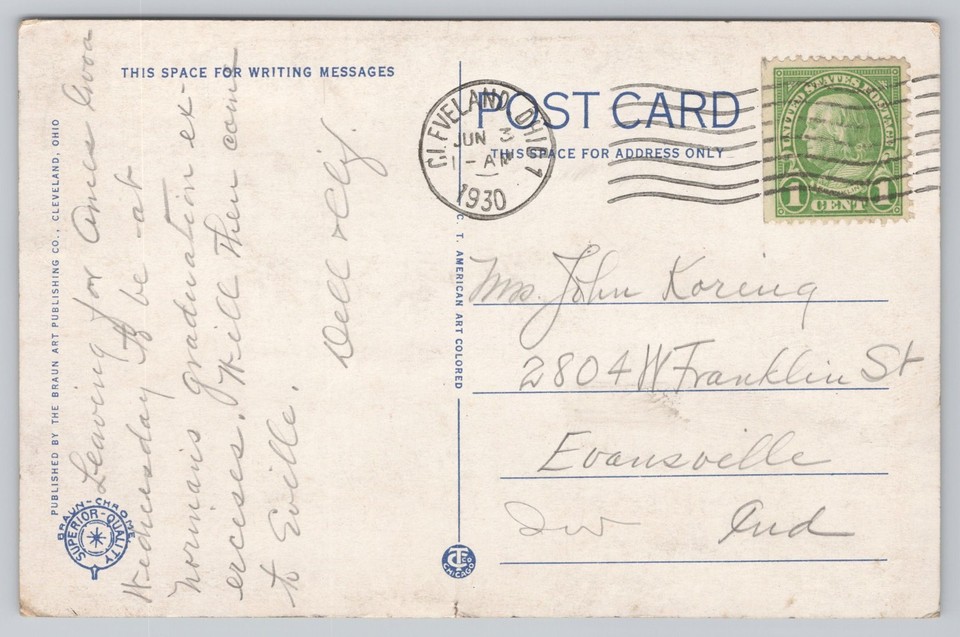 THIS SPACE FOR WRITING MESSAGES
Leaving for Ames Iowa
Wednesday to be at
Norman's graduation ex-
ercises. Will then come
to Eville.
Dell & Clif.
PUBLISHED BY THE BRAUN ART PUBLISHING CO., CLEVELAND, OHIO
BRAUN-CHROME
SUPERIOR-QUALITY
C. T. AMERICAN ART COLORED
CHICAGO
POST CARD
THIS SPACE FOR ADDRESS ONLY
CLEVELAND, OHIO
JUN 3
1-AM
1930
UNITED STATES POSTAGE
1 CENT 1
Mrs. John Koring
2804 W Franklin St
Evansville
Ind